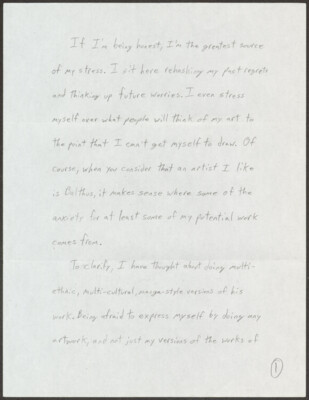 If I'm being honest, I'm the greatest source
of my stress. I sit here rehashing my past regrets
and thinking up future worries. I even stress
myself over what people will think of my art to
the point that I can't get myself to draw. Of
course, when you consider that an artist I like
is Balthus, it makes sense where some of the
anxiety for at least some of my potential work
comes from.
To clarify, I have thought about doing multi-
ethnic, multi-cultural, manga-style versions of his
work. Being afraid to express myself by doing any
artwork, and not just my versions of the works of
1